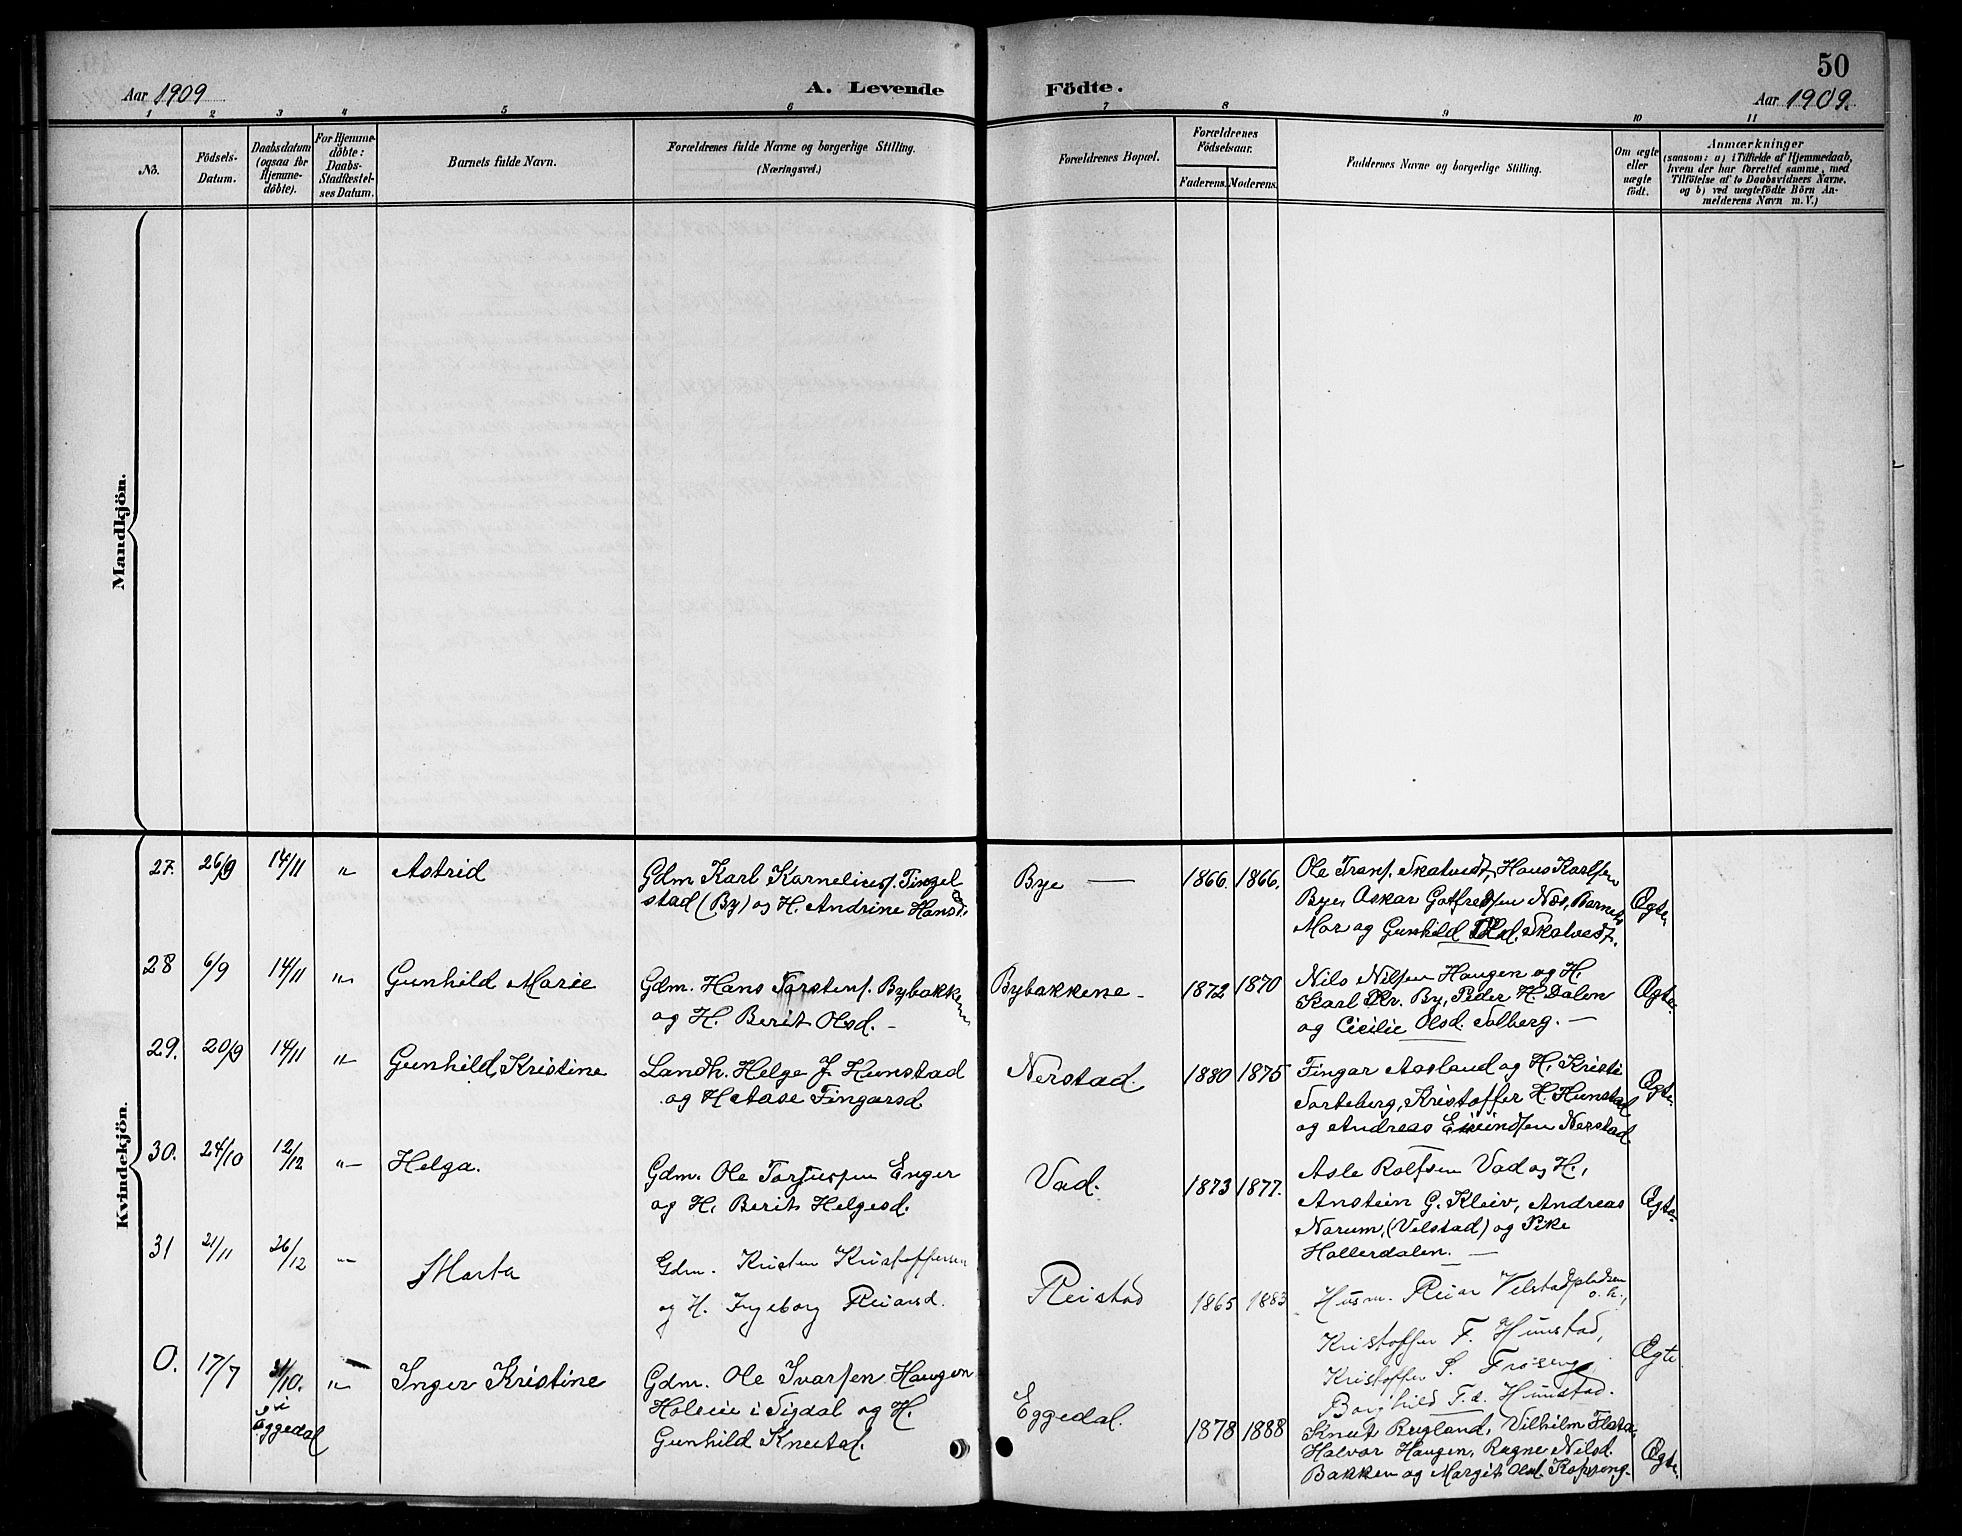 50
Aar 1909
A. Levende Födte.
Aar 1909.
1 2 3 4 5 6 7 8 9 10 11
No.
Födsels-
Datum.
Daabsdatum
(ogsaa for
Hjemme-
döbte).
For Hjemme-
döbte:
Daabs-
Stadfestel-
ses Datum.
Barnets fulde Navn.
Forældrenes fulde Navne og borgerlige Stilling.
(Næringsvei.)
Forældrenes Bopæl.
Forældrenes
Födselsaar.
Faderens. Moderens.
Faddernes Navne og borgerlige Stilling.
Om ægte
eller
uægte
födt.
Anmærkninger
(saasom: a) i Tilfælde af Hjemmedaab,
hvem der har forrettet samme, med
Tilföielse af to Daabsvidners Navne.
og b) ved uægtefödte Börn An-
melderens Navn m. V.)
Mandkjön.
Kvindekjön.
27. 26/9 14/11 " Astrid
Gdm Karl Kornelius. Tingel
stad (By) og H. Andrine Hansd.
Bye —
1866. 1866.
Ole Frans. Skatvedt, Hans Karlsen
Bye, Oskar Gotfredsen Næs, Barnets
Mor og Gunhild Skatvedt.
Ægte.
28 6/9 14/11 " Gunhild Marie
Gdm. Hans Torstens. Bybakkene
og H. Berit Olsd. —
Bybakkene —
1872 1870
Nils Nilsen Haugen og H.
Karl Kr. By, Peder H. Dalen
og Cicilie Olsd. Solberg. —
Ægte.
29. 20/9 14/11 " Gunhild Kristine
Landh. Helge J. Hunstad
og H Aase Fingarsd
Nerstad.
1880 1875
Fingar Aasland og H, Kristi
Torteberg, Kristoffer H. Hunstad
og Andreas Eivindsen Nerstad
Ægte.
30. 24/10 12/12 " Helga.
Gdm. Ole Torjussen Enger
og H. Berit Helgesd.
Vad.
1873 1877.
Asle Rolfsen Vad og H,
Anstein G. Kleiv, Andreas
Narum, (Velstad) og Pike
Hollerdalen. —
Ægte.
31 21/11 26/12 " Marta
Gdm. Kristen Kristoffersen
og H. Ingeborg Reiarsd.
Reistad
1865 1883
Husm. Reiar Velstadpladsen
o. h.,
Kristoffer F. Hunstad,
Kristoffer S. Frøseng
Borghild F.d. Hunstad.
Ægte
0. 17/7 31/10. i Eggedal " Inger Kristine
Gdm. Ole Ivarsen Haugen
Holeie i Sigdal og H.
Gunhild Knutsd.
Eggedal.
1878 1888
Knut Bugland, Vilhelm Flata
Halvor Haugen, Ragne Nilsd.
Bakken og Margit Olsd. Kopseng.
Ægte